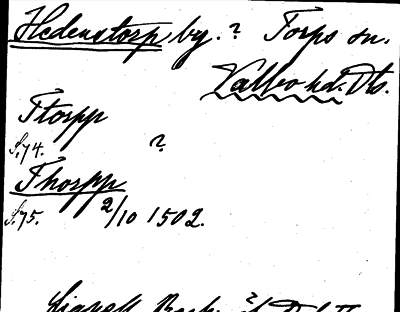 Hedenstorp by. ? Torps sn.
Valbo hd. Dls.
Ttorpp
S. 74. ?
Thorpp
S. 75. 2/10 1502.